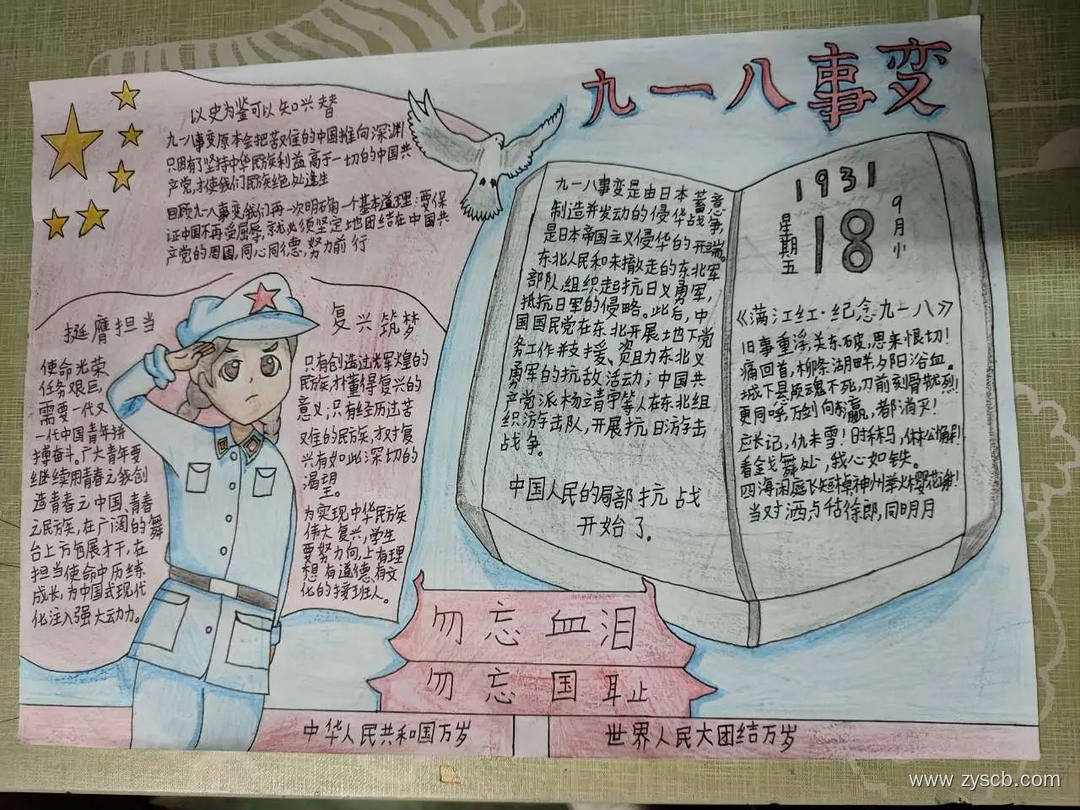 九一八事变
以史为鉴可以知兴替
九一八事变原本会把苦难的中国推向深渊
只因有了坚持中华民族利益高于一切的中国共
产党,才使我们民族绝处逢生
回顾九一八事变我们再一次明确一个基本道理:要保
证中国不再受屈辱,就必须坚定地团结在中国共
产党的周围,同心同德,努力前行
挺膺担当
使命光荣
任务艰巨,
需要一代又
一代中国青年拼
搏奋斗。广大青年要
继续用青春之我创
造青春之中国、青春
之民族,在广阔的舞
台上万包展才干,在
担当使命中历练
成长,为中国式现代
化注入强大动力。
复兴筑梦
只有创造过光辉煌的
民族,才懂得复兴的
意义;只有经历过苦
难的民族,才对复
兴有如此深切的
渴望。
为实现中华民族
伟大复兴,学生
要努力向上有理
想有道德有文
化的接班人。
九一八事变是由日本蓄意
制造并发动的侵华战争,
是日本帝国主义侵华的开端。
东北人民和未撤走的东北军
部队,组织起抗日义勇军,
抵抗日军的侵略。此后,中
国国民党在东北开展地下党
务工作并支援、资助东北义
勇军的抗敌活动;中国共
产党派杨靖宇等人在东北组
织游击队,开展抗日游击
战争。
中国人民的局部抗战
开始了.
1931
星期五
18
9月小
《满江红·纪念九一八》
旧事重浮,关东破,思来恨切!
痛回首,柳条湖畔,夕阳浴血。
城下县魂不死,刀前刻骨烈!
更同呼,万剑向,都消灭!
应长记,仇未雪!时秣马,休
看金戈舞处,我心如铁。
四海闲庭飞短棹神州举火樱花谢!
当对洒点徐郎,同明月
勿忘血泪
勿忘国耻
中华人民共和国万岁
世界人民大团结万岁
www.zyscb.com